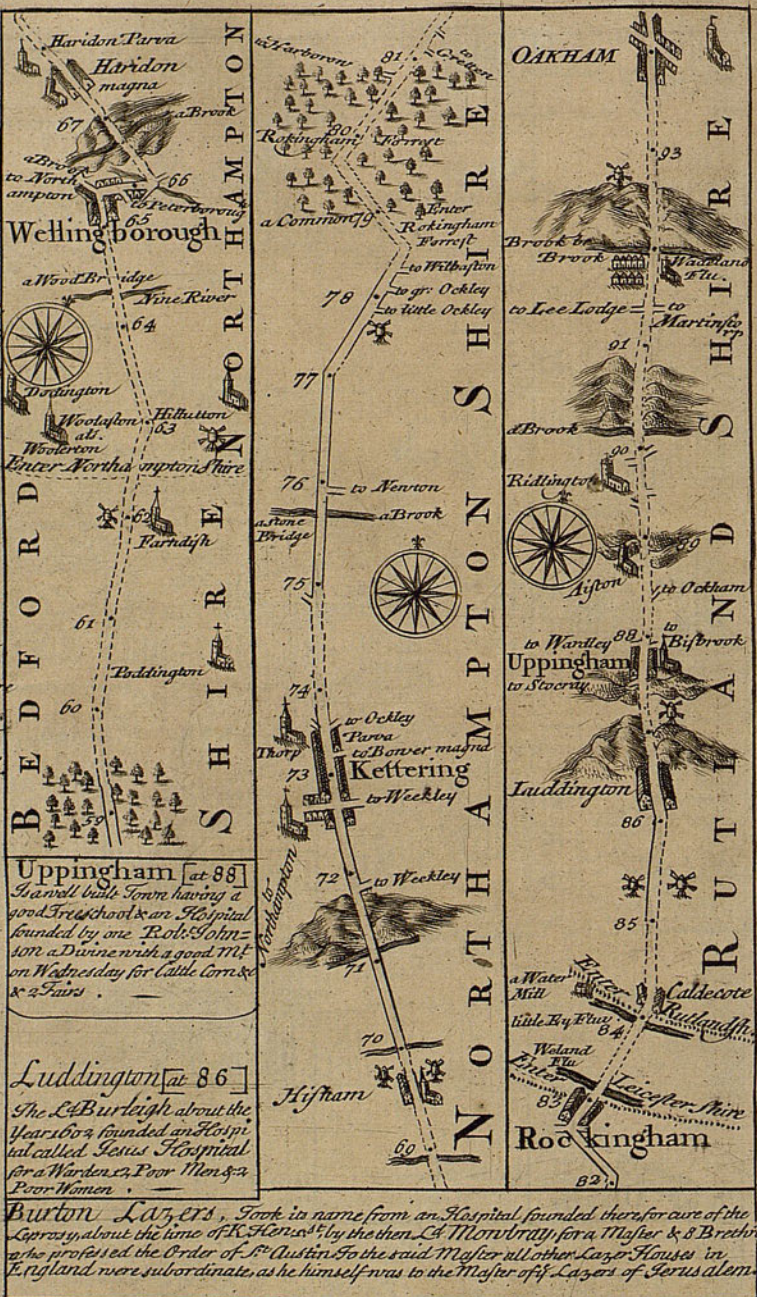 Haridon Parva
Haridon
magna
67
a Brook
a Brook
to North
ampton
66
to Peterboroug
65
Wellingborough
a Wood Bridge
Nine River
64
Dodington
Hillutton
Woolaston
63
als.
Woolerton
Enter Northamptonshire
62
Farndish
61
Poddington
60
59
BEDFORD
SHIRE
NORTHAMPTON
Uppingham [at 88]
Is a well built Town having a
good Freeschool & an Hospital
founded by one Robt. John=
son a Divine with a good Mt.
on Wednesday for Cattle Corn &c
& 2 Fairs.
Luddington [at 86]
The Ld. Burleigh about the
Year 1602 founded an Hospi
tal called Jesus Hospital
for a Warden 12 Poor Men & 2
Poor Women.
to Harboron
81
to
Gretton
80
Rokingham Forrest
a Common
79
Enter
Rokingham
Forrest
to Wilbaston
78
to gr: Ockley
to little Ockley
77
76
to Newton
a stone
Bridge
a Brook
75
74
to Ockley
Parva
Thorp
to Bower magna
73
Kettering
to Weekley
72
to Weekley
to
Northampton
71
70
Hisham
69
NORTHAMPTON SHIRE
OAKHAM
93
Brook be
Brook
Wadeland
Flu.
to Lee Lodge
to
Martinsto
rp
91
a Brook
90
Ridlington
89
Aiston
to Ockham
88
to
Bisbrook
to Wardley
Uppingham
to Stocray
Luddington
86
85
a Water
Mill
Enter
Caldecote
Rutlandsh.
little Ey Fluv
84
Weland
Flu
Enter
Leicester Shire
83
Rockingham
82
RUTLAND SHIRE
Burton Lazers, Took its name from an Hospital founded there, for cure of the
Leprosy, about the time of K. Hen: 1st. by the then Ld. Mowbray, for a Master & 8 Brethr
who professed the Order of St. Austin. To the said Master all other Lazer Houses in
England were subordinate, as he himself was to the Master of ye Lazers of Jerusalem.